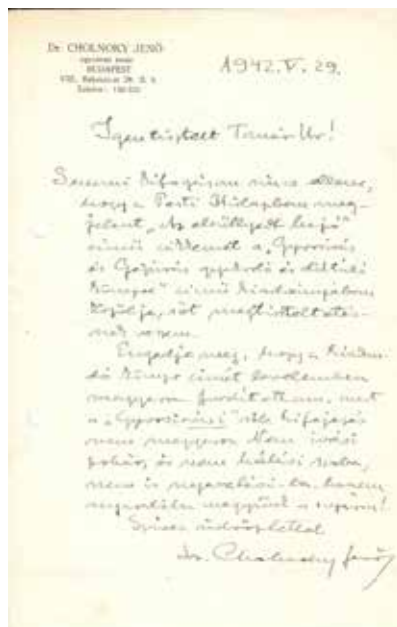 Dr. CHOLNOKY JENŐ
egyetemi tanár
BUDAPEST
1942. V. 29.
Igen tisztelt Tanár Úr!
Semmi kifogásom nincs ellene,
hogy a Pesti Hírlapban meg-
jelent „Az elsüllyedt hajó"
című cikkemet a „Gyorsírás
és Gépírás
könyve" című kiadványában
közölje, sőt megtiszteltetés-
nek veszem.
Engedje meg, hogy a kiadan-
dó könyv címét
magyarra fordítottam, mert
a „Gyorsírási" -féle kifejezés
nem magyaros. Nem ivási
pohár, és nem hálási szoba,
nem is hanem
Szíves üdvözlettel
Dr. Cholnoky Jenő